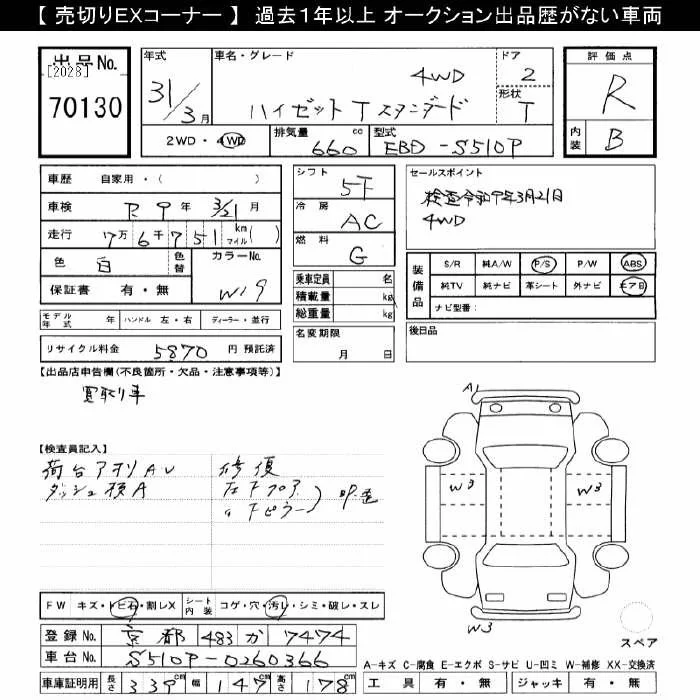 【 売切りEXコーナー 】 過去1年以上 オークション出品歴がない車両
出品No.
[2028]
70130
年式
31/3月
車名・グレード
4WD
ハイゼットT スタンダード
ドア
2
形状
T
評価点
R
内装
B
2WD・4WD
排気量
660 cc
型式
EBD-S510P
車歴 自家用・( )
車検 R9年 3/21月
走行 7万6千751 km マイル ( )
色 白 色替
カラーNo.
W19
保証書 有・無
シフト
5F
冷房
AC
燃料
G
乗車定員 名
積載量 kg
総重量 kg
セールスポイント
検査令和9年3月21日
4WD
装備品
S/R 純A/W P/S P/W ABS
純TV 純ナビ 革シート 外ナビ エアB
ナビ型番:
モデル年式 年 ハンドル 左・右 ディーラー・並行
名変期限
月 日
後日品
リサイクル料金 5870 円 預託済
【出品店申告欄(不良箇所・欠品・注意事項等)】
買取り車
【検査員記入】
荷台アオリAU
ダッシュ横A
修復
左Fフロア
〃Fピラー
A1
W3
W3
W3
FW キズ・トビ石・割レX
シート内装 コゲ・穴・汚レ・シミ・破レ・スレ
登録No. 京都 483 か 7474
車台No. S510P-0260366
車庫証明用 長さ 339cm 幅 147cm 高さ 178cm
スペア
A-キズ C-腐食 E-エクボ S-サビ U-凹ミ W-補修 XX-交換済
工具 有・無 ジャッキ 有・無